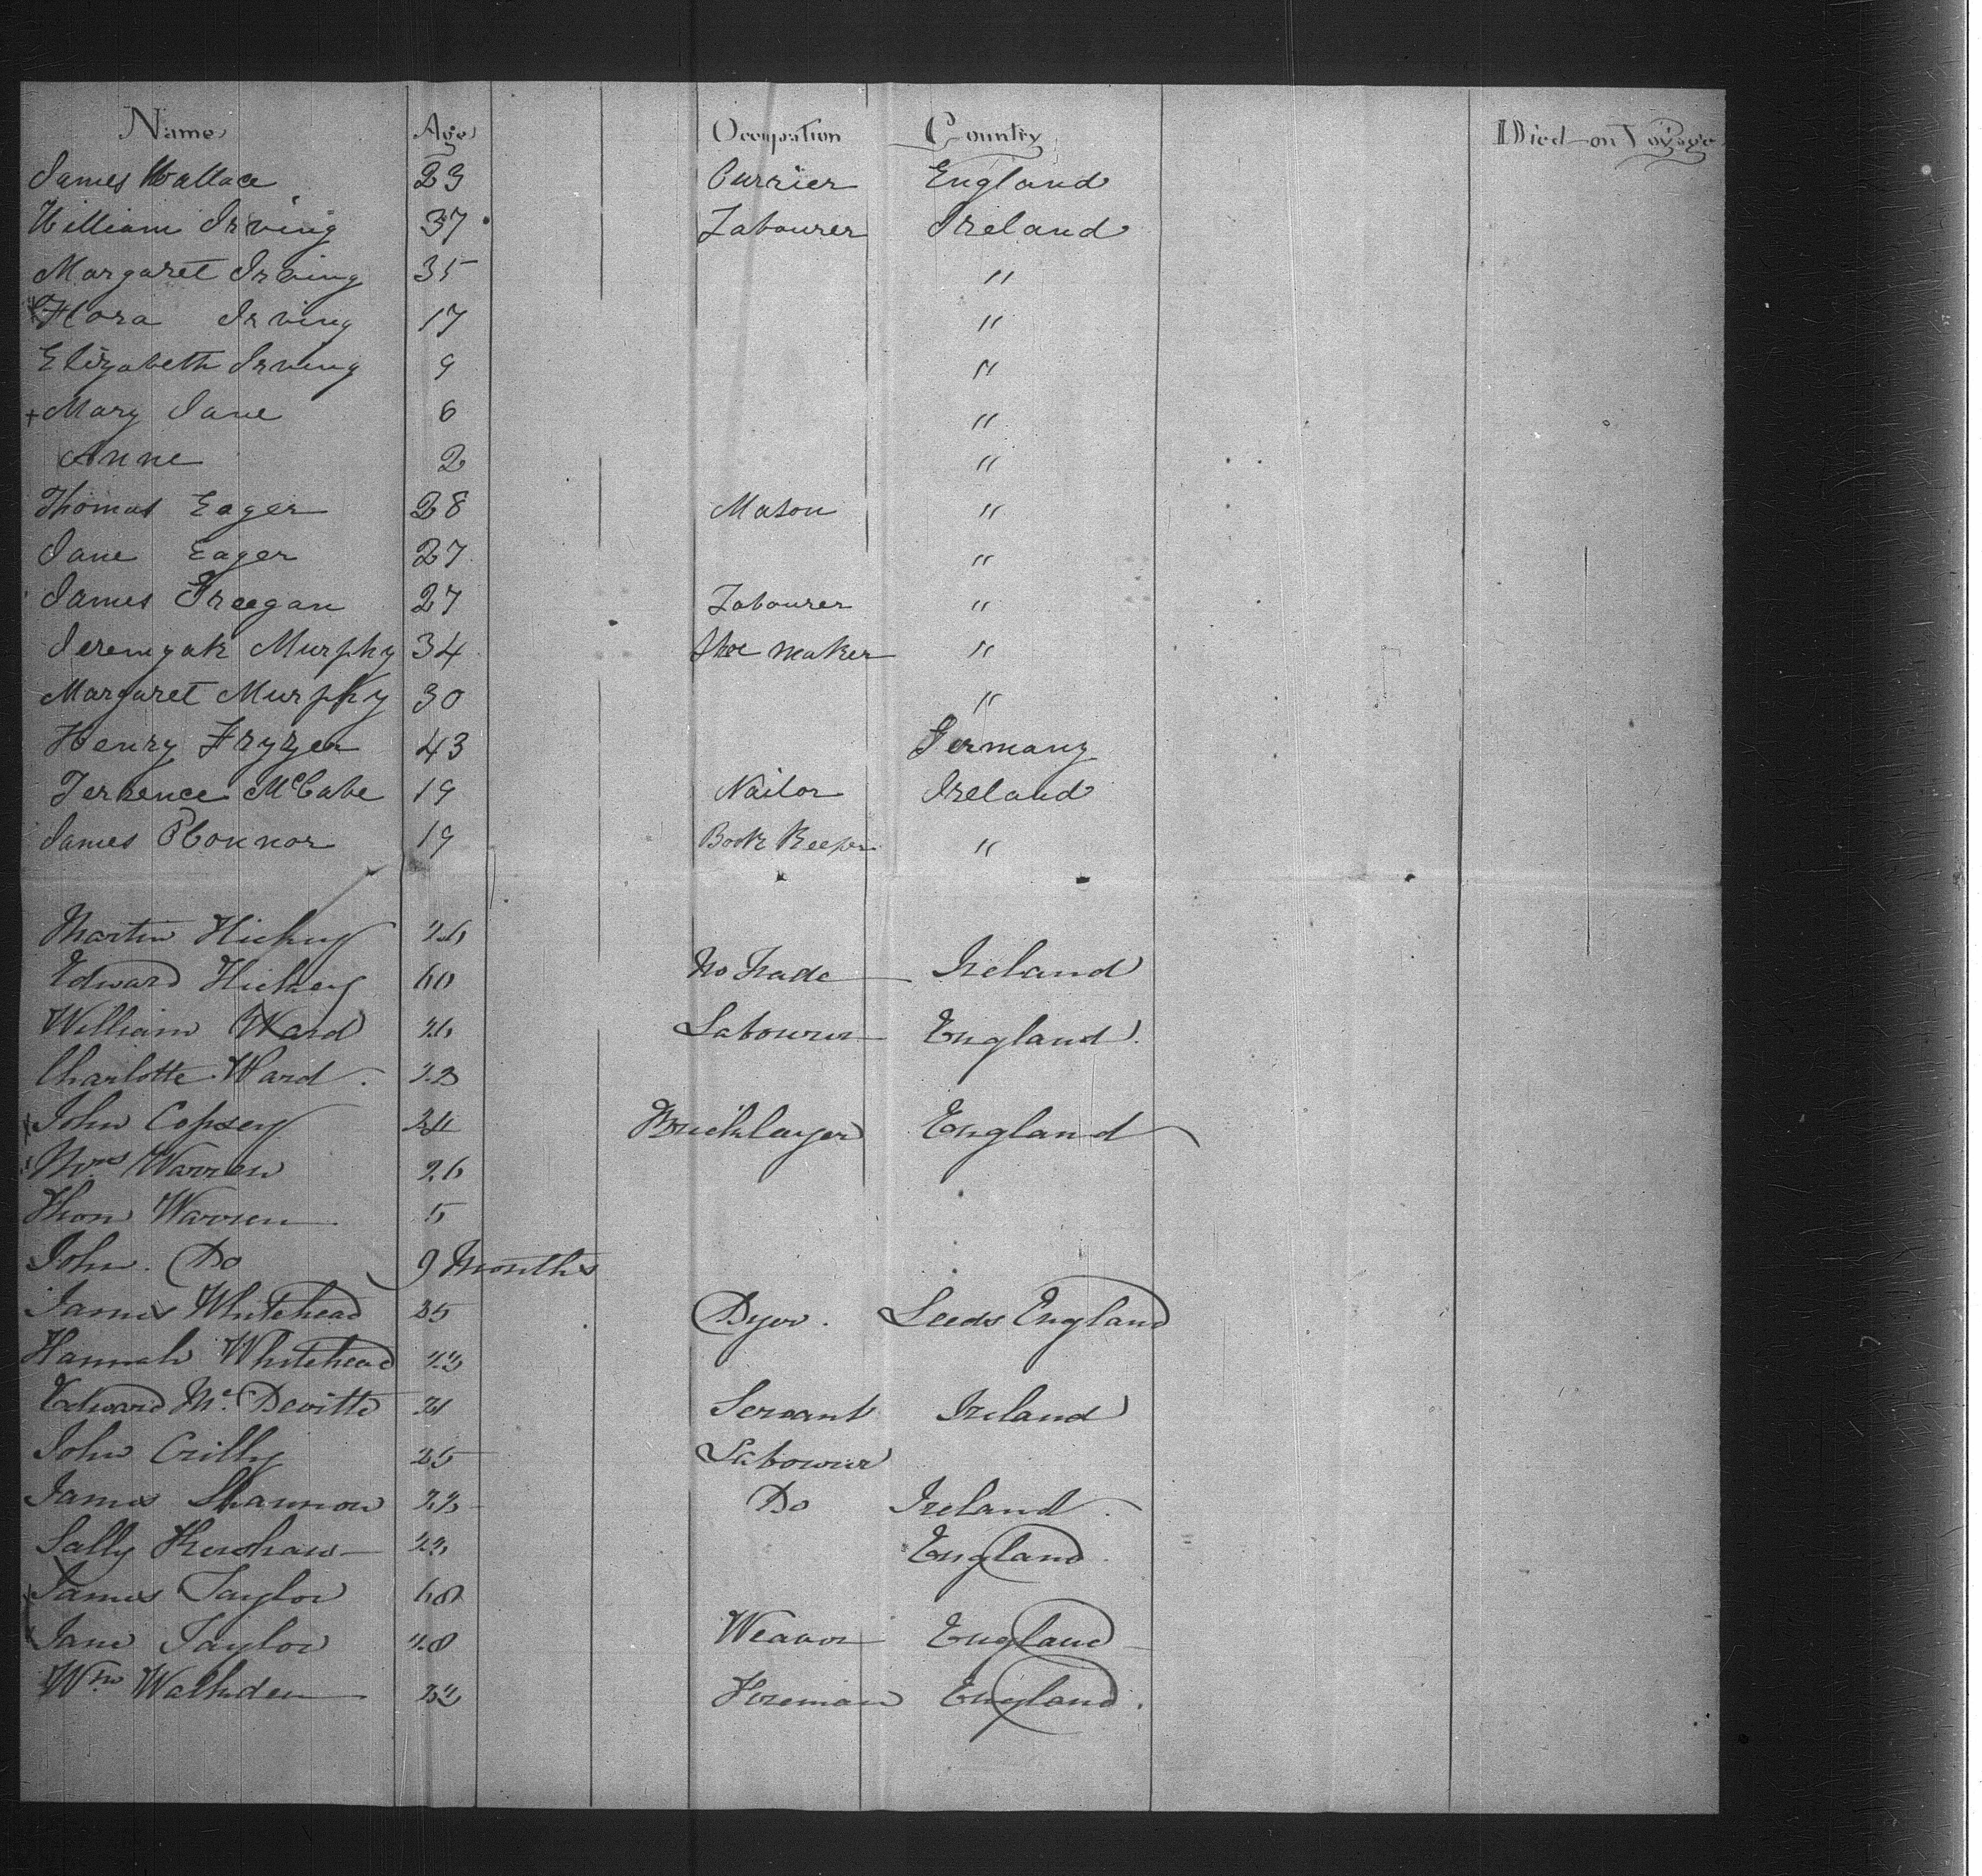 Name Age Occupation Country Died on Voyage
James Wallace 23 Currier England
William Irving 37 Labourer Ireland
Margaret Irving 35 "
Flora Irving 17 "
Elizabeth Irving 9 "
+ Mary Jane 6 "
Anne 2 "
Thomas Eager 28 Mason "
Jane Eager 27 "
James Freegan 27 Labourer "
Jeremyah Murphy 34 Shoe maker "
Margaret Murphy 30 "
Henry Fryzer 43 Germany
Terrence McCabe 19 Nailor Ireland
James O'Connor 19 Book Keeper "
Martin Hickey 26
Edward Hickey 60 No Trade Ireland
William Ward 26 Labourer England
Charlotte Ward 23
John Copsey 34 Bricklayer England
Mrs Warren 26
Thom Warren 5
John Do 9 Months
James Whitehead 35 Dyer Leeds England
Hannah Whitehead 22
Edward Mc Devitte 21 Servant Ireland
John Crilly 25 Labourer
James Shannon 22 Do Ireland
Sally Kershaw 22 England
James Taylor 60
Jane Taylor 20 Weavor England
Wm Walkden 32 Foreman England